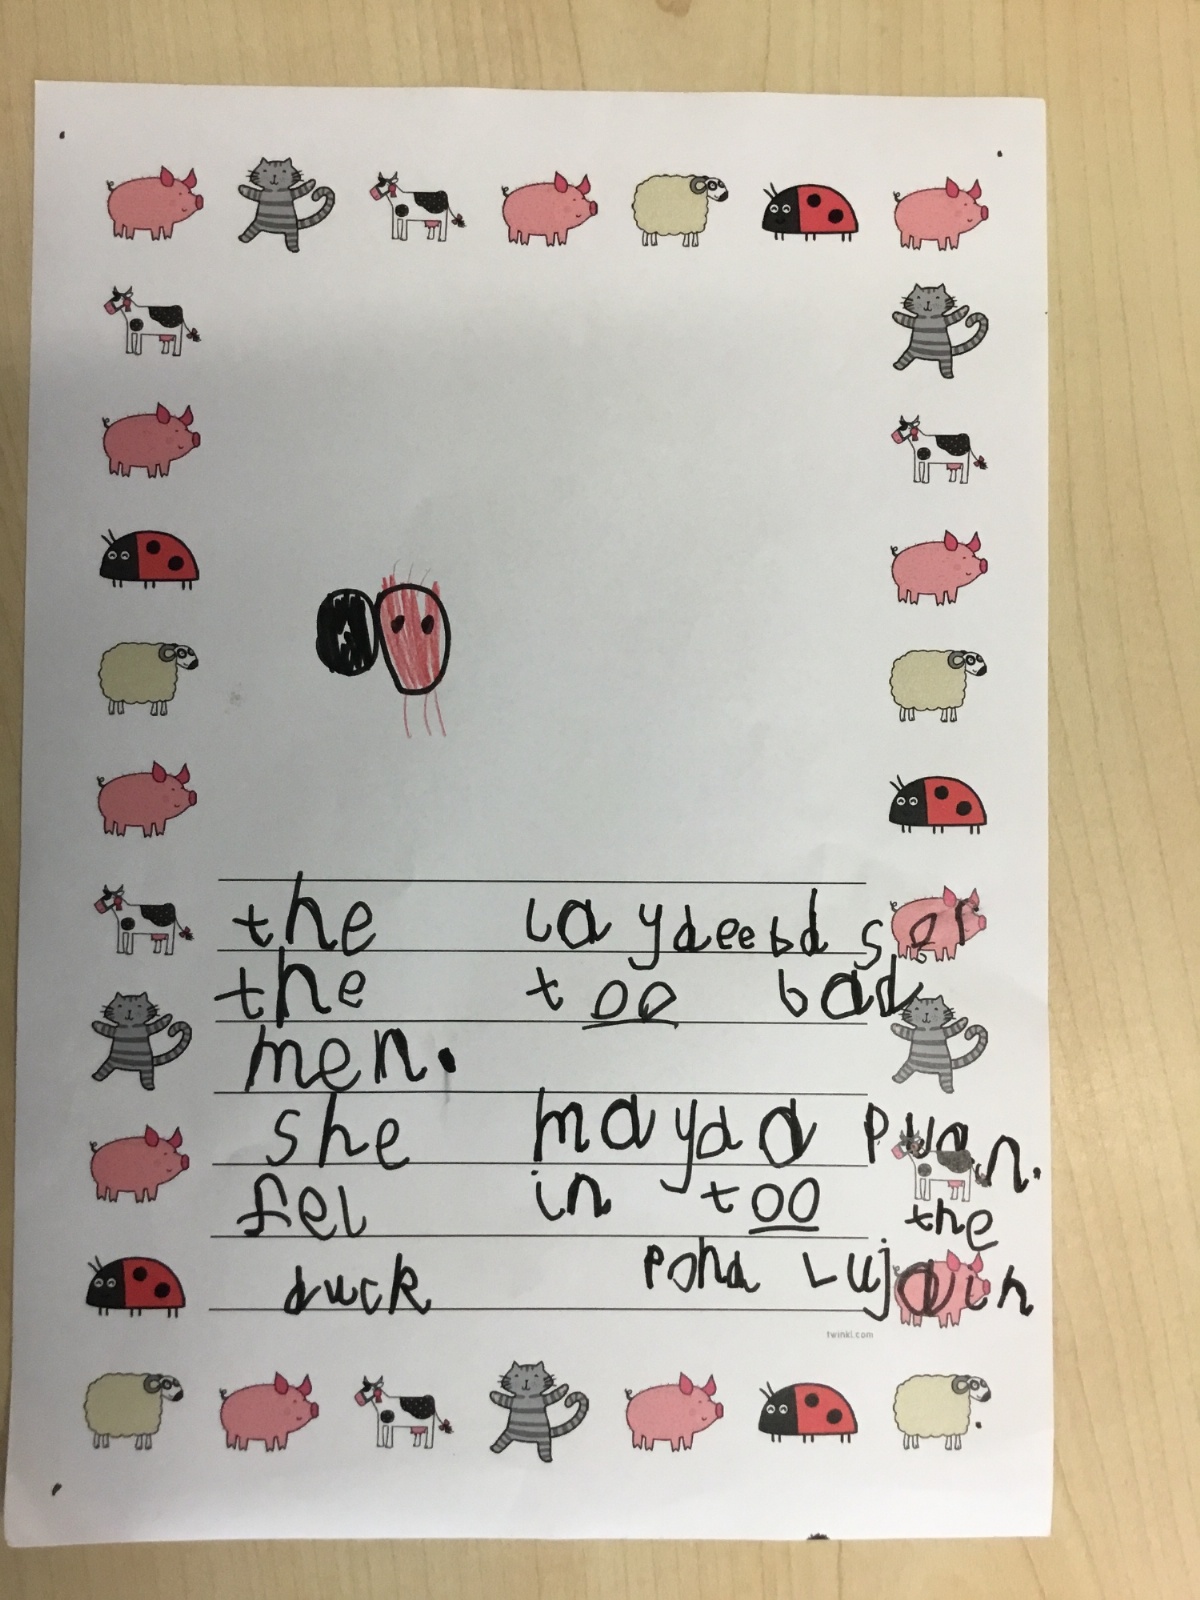 the laydeebd sor
the too bad
men.
she mayd a pwan.
fel in too the
duck pond Lujain
twinkl.com